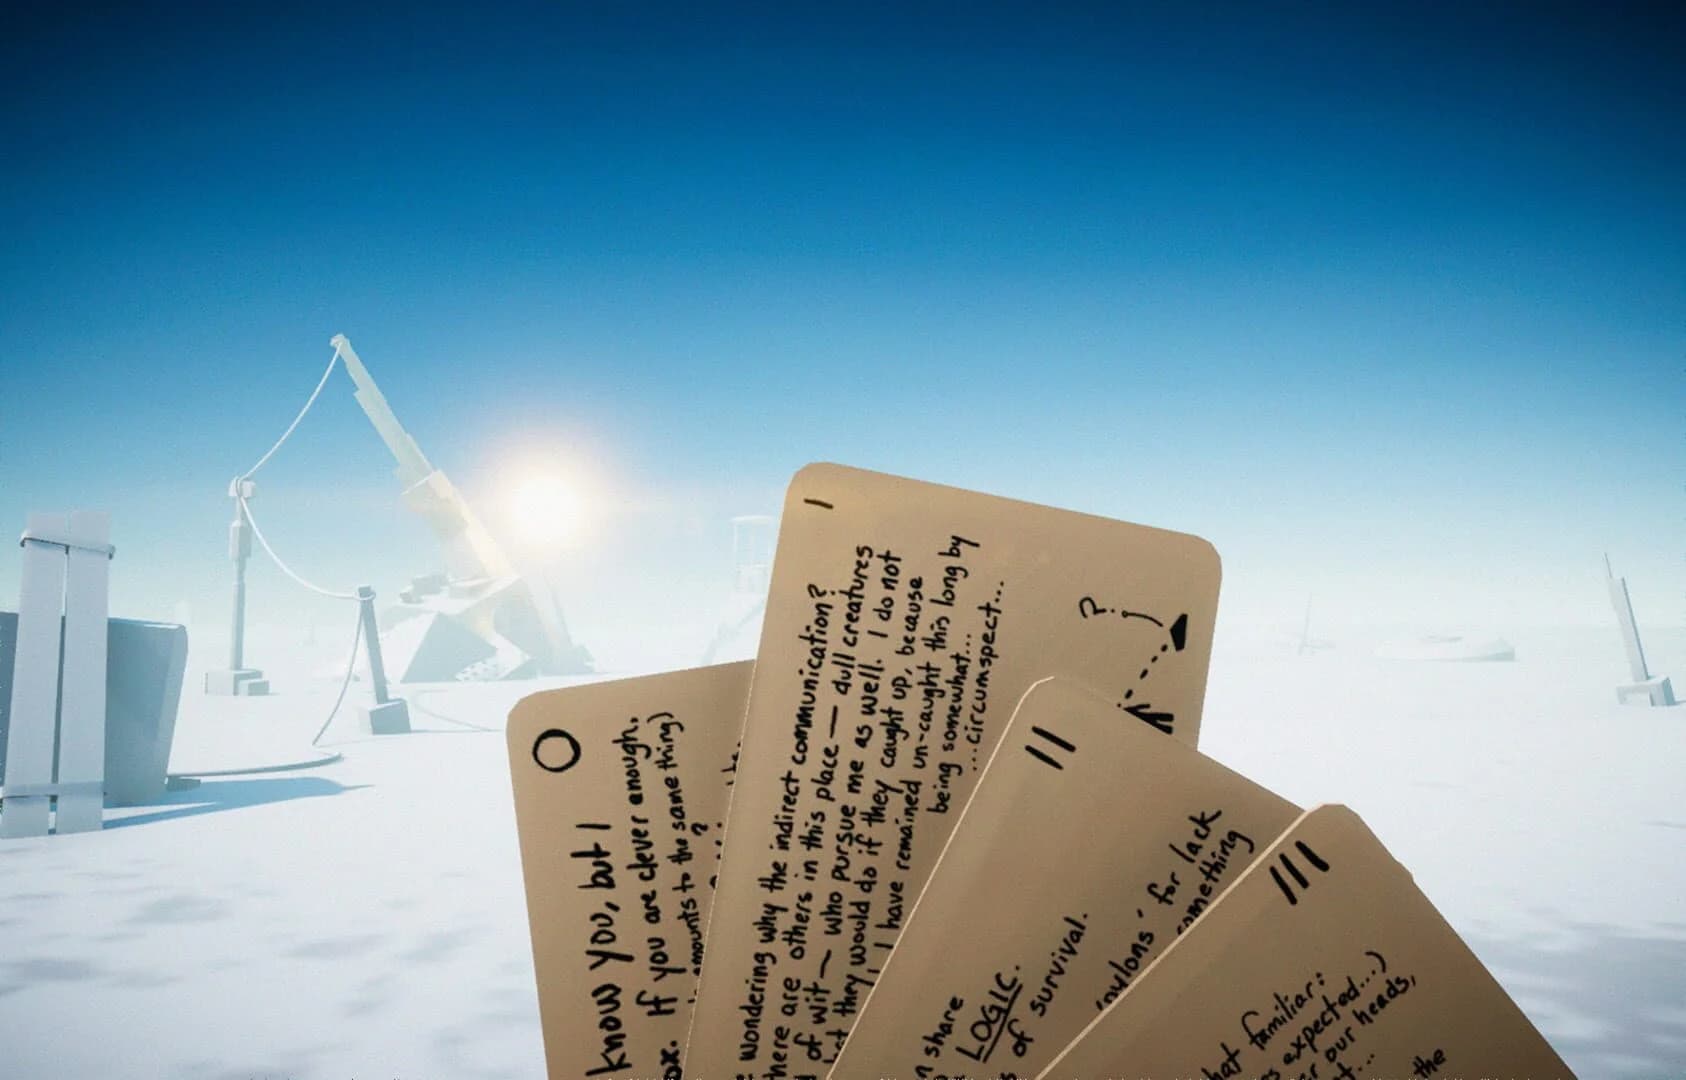 O
know you, but I
ox. If you are clever enough.
amounts to the same thing)
?
I
wondering why the indirect communication?
here are others in this place — dull creatures
of wit — who pursue me as well. I do not
they would do if they caught up, because
I have remained un-caught this long by
being somewhat...
...circumspect...
?
II
share
LOGIC.
of survival.
pylons' for lack
something
III
hat familiar:
expected...)
our heads,
the